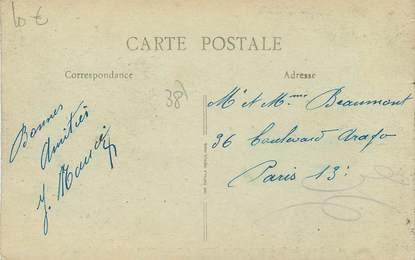 10 €
CARTE POSTALE
Correspondance
Adresse
38)
Bonnes
Amitiés
J.
Mr et Mme Beaumont
36 Boulevard Arago
Paris 13: